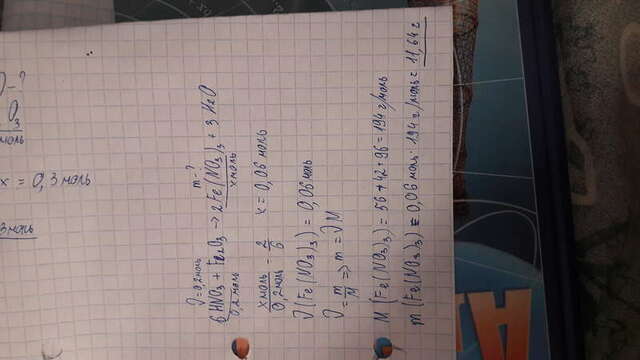 ) - ?
O₃
моль
x = 0,3 моль
3 моль
m - ?
ν = 0,2 моль
6HNO₃ + Fe₂O₃ → 2Fe(NO₃)₃ + 3H₂O
0,2 моль x моль
x моль / 0,2 моль = 2/6 x = 0,06 моль
ν (Fe(NO₃)₃) = 0,06 моль
ν = m/M => m = νM
M (Fe(NO₃)₃) = 56 + 42 + 96 = 194 г/моль
m (Fe(NO₃)₃) = 0,06 моль · 194 г/моль = 11,64 г